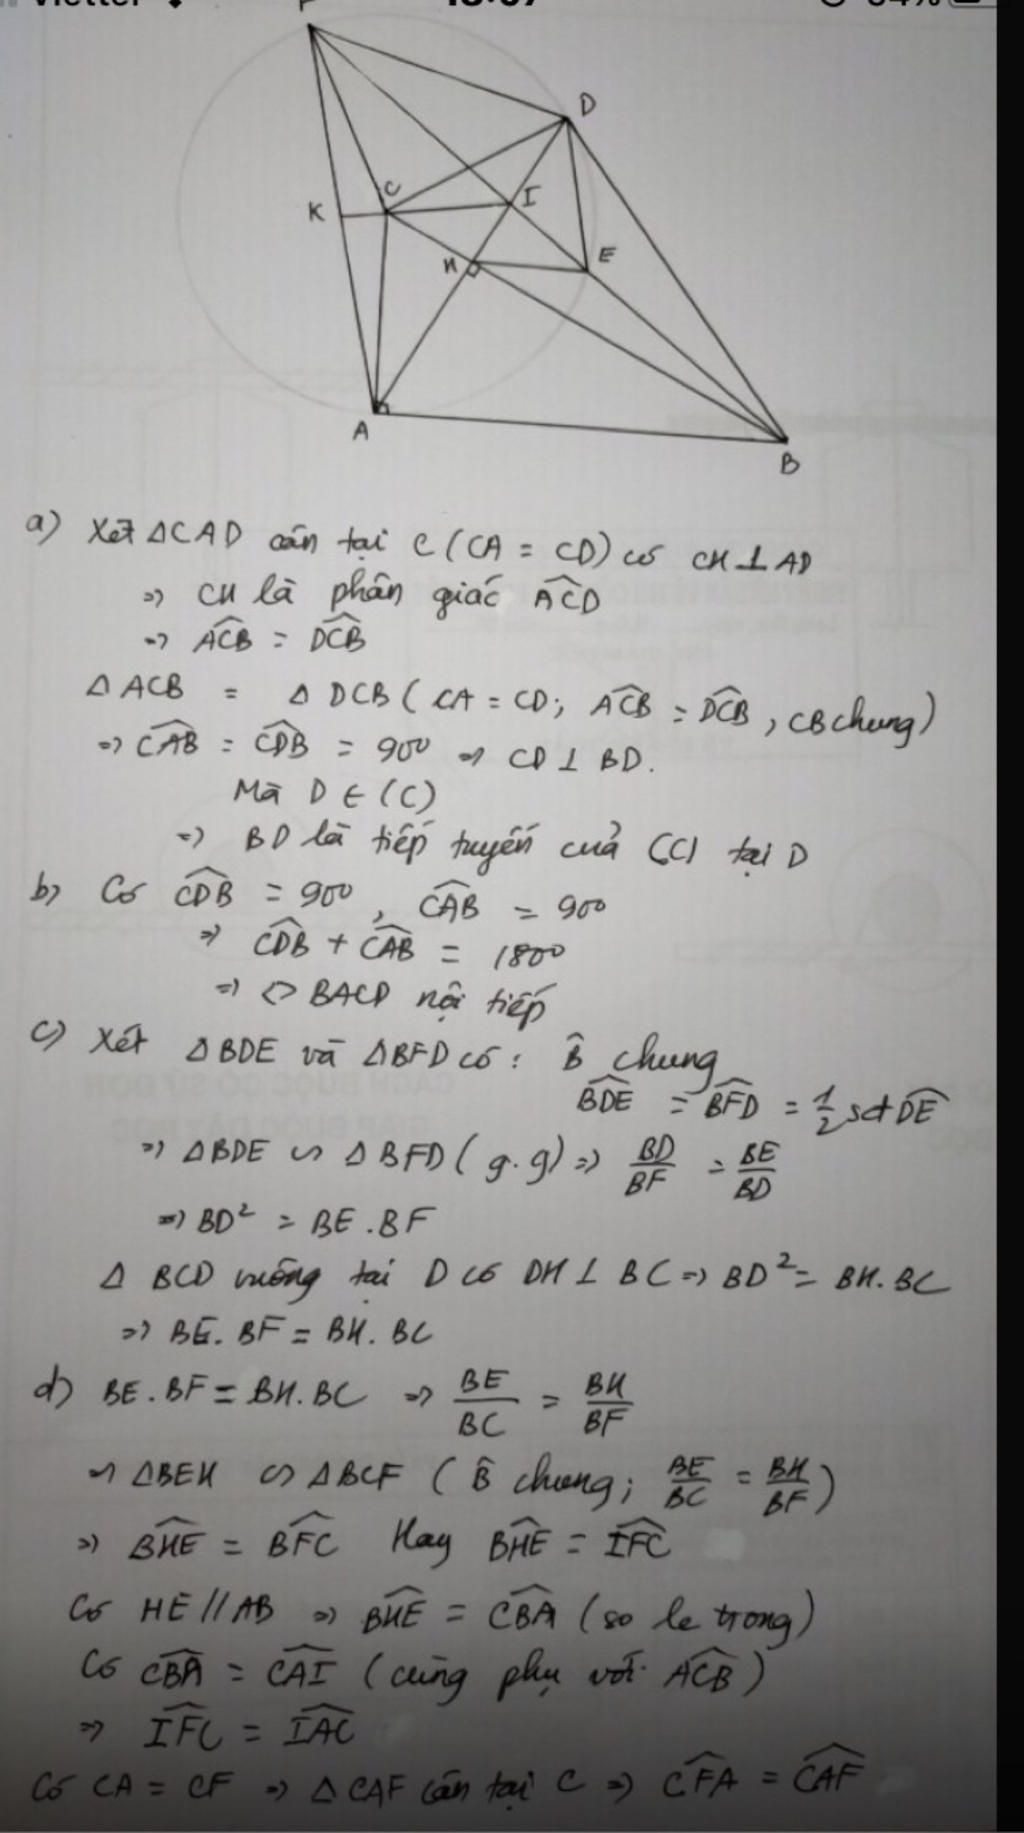 Viettel
18:07
84%
F
D
C
K
I
H
E
A
B
a) Xét ΔCAD cân tại C (CA = CD) có CH ⊥ AD
=> CH là phân giác ACD
=> ACB = DCB
ΔACB = ΔDCB (CA = CD; ACB = DCB, CB chung)
=> CAB = CDB = 90° => CD ⊥ BD.
Mà D ∈ (C)
=> BD là tiếp tuyến của (C) tại D
b) Có CDB = 90°, CAB = 90°
=> CDB + CAB = 180°
=> ◇ BACD nội tiếp
c) Xét ΔBDE và ΔBFD có: B chung
BDE = BFD = 1/2 sđ DE
=> ΔBDE ∽ ΔBFD (g.g) => BD/BF = BE/BD
=> BD² = BE.BF
Δ BCD vuông tại D có DH ⊥ BC => BD² = BH.BC
=> BE.BF = BH.BC
d) BE.BF = BH.BC => BE/BC = BH/BF
=> ΔBEH ∽ ΔBCF (B chung; BE/BC = BH/BF)
=> BHE = BFC Hay BHE = IFC
Có HE // AB => BHE = CBA (so le trong)
Có CBA = CAI (cùng phụ với ACB)
=> IFC = IAC
Có CA = CF => ΔCAF cân tại C => CFA = CAF